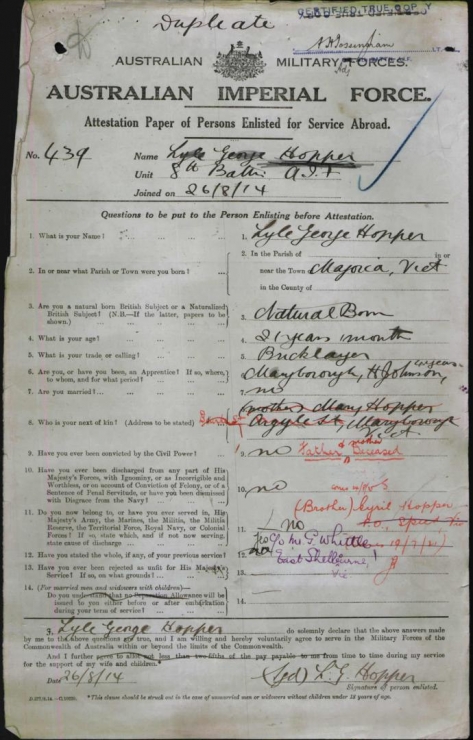 Duplicate
CERTIFIED TRUE COPY
AUSTRALIAN MILITARY FORCES.
AUSTRALIAN IMPERIAL FORCE.
Attestation Paper of Persons Enlisted for Service Abroad.
No. 439 Name Lyle George Hopper
Unit 8th Battn A.I.F
Joined on 26/8/14
Questions to be put to the Person Enlisting before Attestation.
1. What is your Name? 1. Lyle George Hopper
2. In or near what Parish or Town were you born? 2. In the Parish of in or
near the Town Majorca, Vict
in the County of
3. Are you a natural born British Subject or a Naturalized
British Subject? (N.B.—If the latter, papers to be
shown.) 3. Natural Born
4. What is your age? 4. 21 years month
5. What is your trade or calling? 5. Bricklayer
6. Are you, or have you been, an Apprentice? If so, where,
to whom, and for what period? 6. Maryborough, H Johnson, years
7. Are you married? 7. no
8. Who is your next of kin? (Address to be stated) 8. (mother) Mary Hopper
Argyle St, Maryborough
Vict
Father & mother Deceased
9. Have you ever been convicted by the Civil Power? 9. no
10. Have you ever been discharged from any part of His
Majesty's Forces, with Ignominy, or as Incorrigible and
Worthless, or on account of Conviction of Felony, or of a
Sentence of Penal Servitude, or have you been dismissed
with Disgrace from the Navy? 10. no
(Brother) Cyril Hopper
11. Do you now belong to, or have you ever served in, His
Majesty's Army, the Marines, the Militia, the Militia
Reserve, the Territorial Force, Royal Navy, or Colonial
Forces? If so, state which, and if not now serving,
state cause of discharge 11. no
c/o Mr. G Whittle
East Shelbourne,
Vic
12. Have you stated the whole, if any, of your previous service? 12.
13. Have you ever been rejected as unfit for His Majesty's
Service? If so, on what grounds? 13.
14. (For married men and widowers with children)—
Do you understand that no Separation Allowance will be
issued to you either before or after embarkation
during your term of service? 14.
I, Lyle George Hopper do solemnly declare that the above answers made
by me to the above questions are true, and I am willing and hereby voluntarily agree to serve in the Military Forces of the
Commonwealth of Australia within or beyond the limits of the Commonwealth.
And I further agree to allot not less than two-fifths of the pay payable to me from time to time during my service
for the support of my wife and children.*
Date 26/8/14 (sgd) L. G Hopper
Signature of person enlisted.
*This clause should be struck out in the case of unmarried men or widowers without children under 18 years of age.